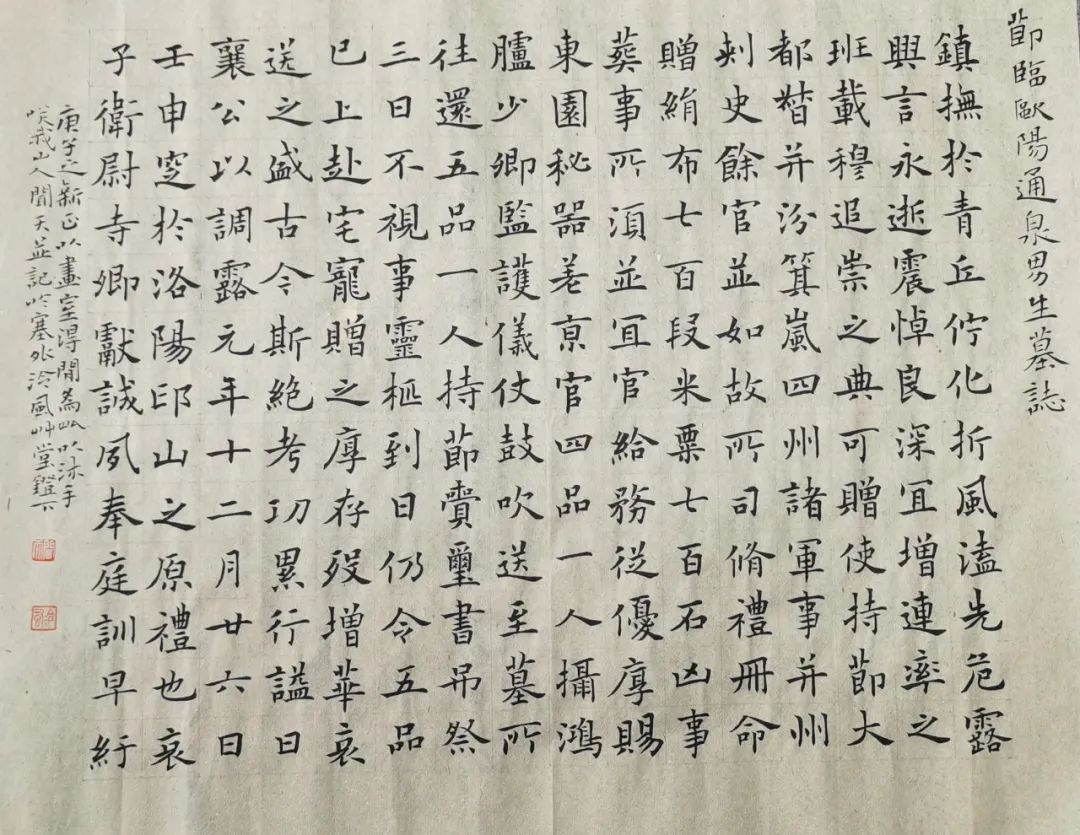 節臨歐陽通泉男生墓誌
鎮撫於青丘佇化折風溘先危露
興言永逝震悼良深宜增連率之
班載穆追崇之典可贈使持節大
都督并汾箕嵐四州諸軍事并州
刺史餘官並如故所司脩禮冊命
贈絹布七百段米粟七百石凶事
葬事所須並宜官給務從優厚賜
東園秘器差京官四品一人攝鴻
臚少卿監護儀仗鼓吹送至墓所
往還五品一人持節賷璽書吊祭
三日不視事靈柩到日仍令五品
已上赴宅寵贈之厚存歿增華哀
送之盛古今斯絕考功累行謚曰
襄公以調露元年十二月廿六日
壬申窆於洛陽邙山之原禮也哀
子衛尉寺卿獻誠夙奉庭訓早紆
庚子之新正以畫室得閒為此以沐手
山人聞天並記於塞外泠風艸堂鐙下